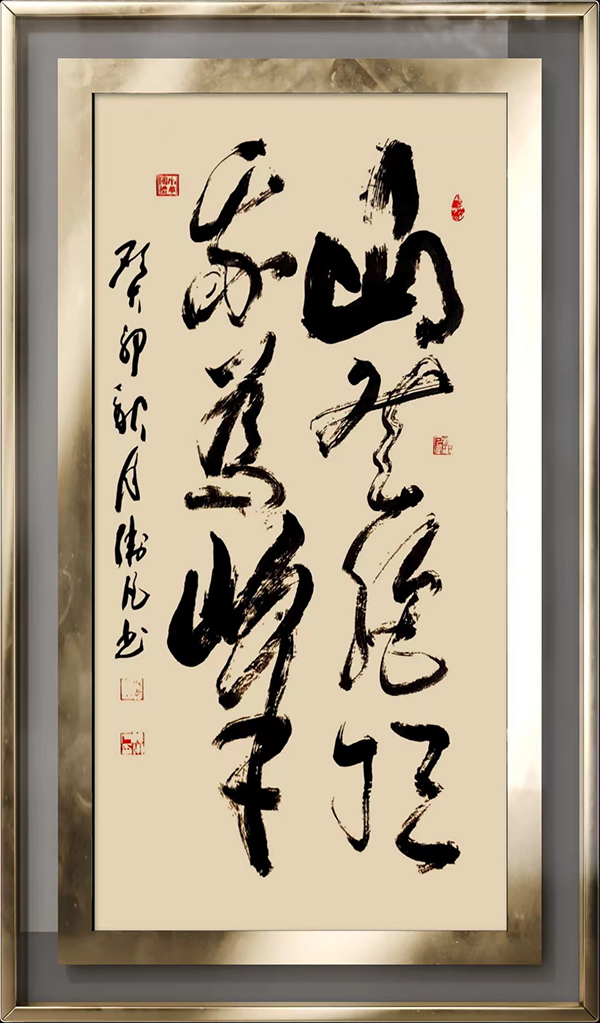 山登绝顶
我为峰
癸卯秋月德凡书